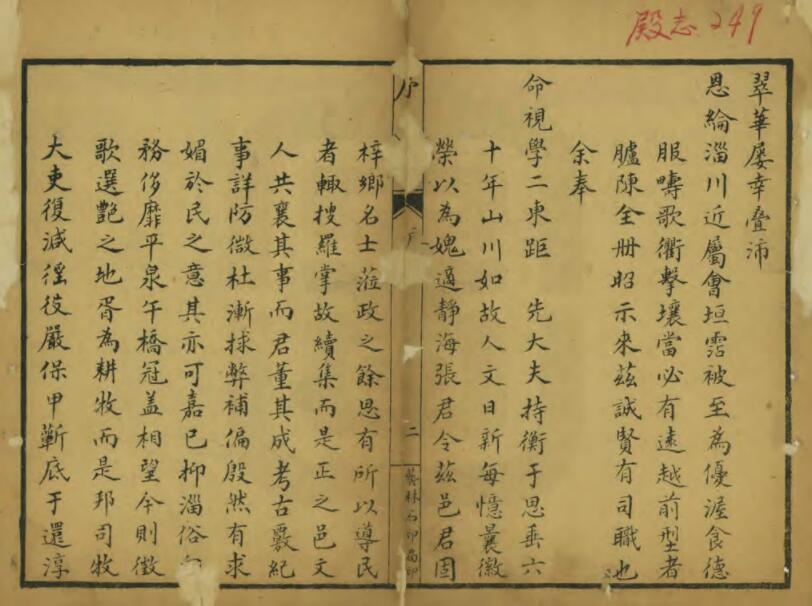 殿志 249
翠華屡幸叠沛
恩綸淄川近屬會垣霑被至為優渥食德
服疇歌衢擊壤當必有遠越前型者
臚陳全册昭示來茲誠賢有司職也
余奉
命視學二東距 先大夫持衡于思垂六
十年山川如故人文日新每憶曩徽
榮以為媿適靜海張君令茲邑君固
序
二
藝林石印局印
梓鄉名士蒞政之餘思有所以導民
者輙搜羅掌故續集而是正之邑文
人共襄其事而君董其成考古覈紀
事詳防微杜漸捄弊補偏殷然有求
媚於民之意其亦可嘉已抑淄俗
務侈靡平泉午橋冠盖相望今則徵
歌選艷之地胥為耕牧而是邦司牧
大吏復減徭役嚴保甲蘄底于還淳